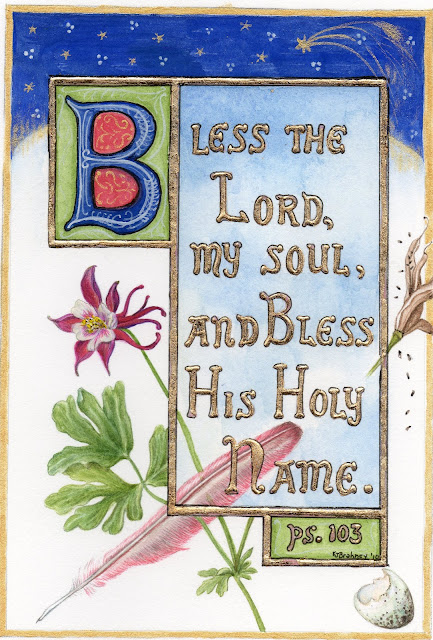 Bless the
Lord,
my soul,
and Bless
His Holy
Name.
ps. 103
EJBrahney '10